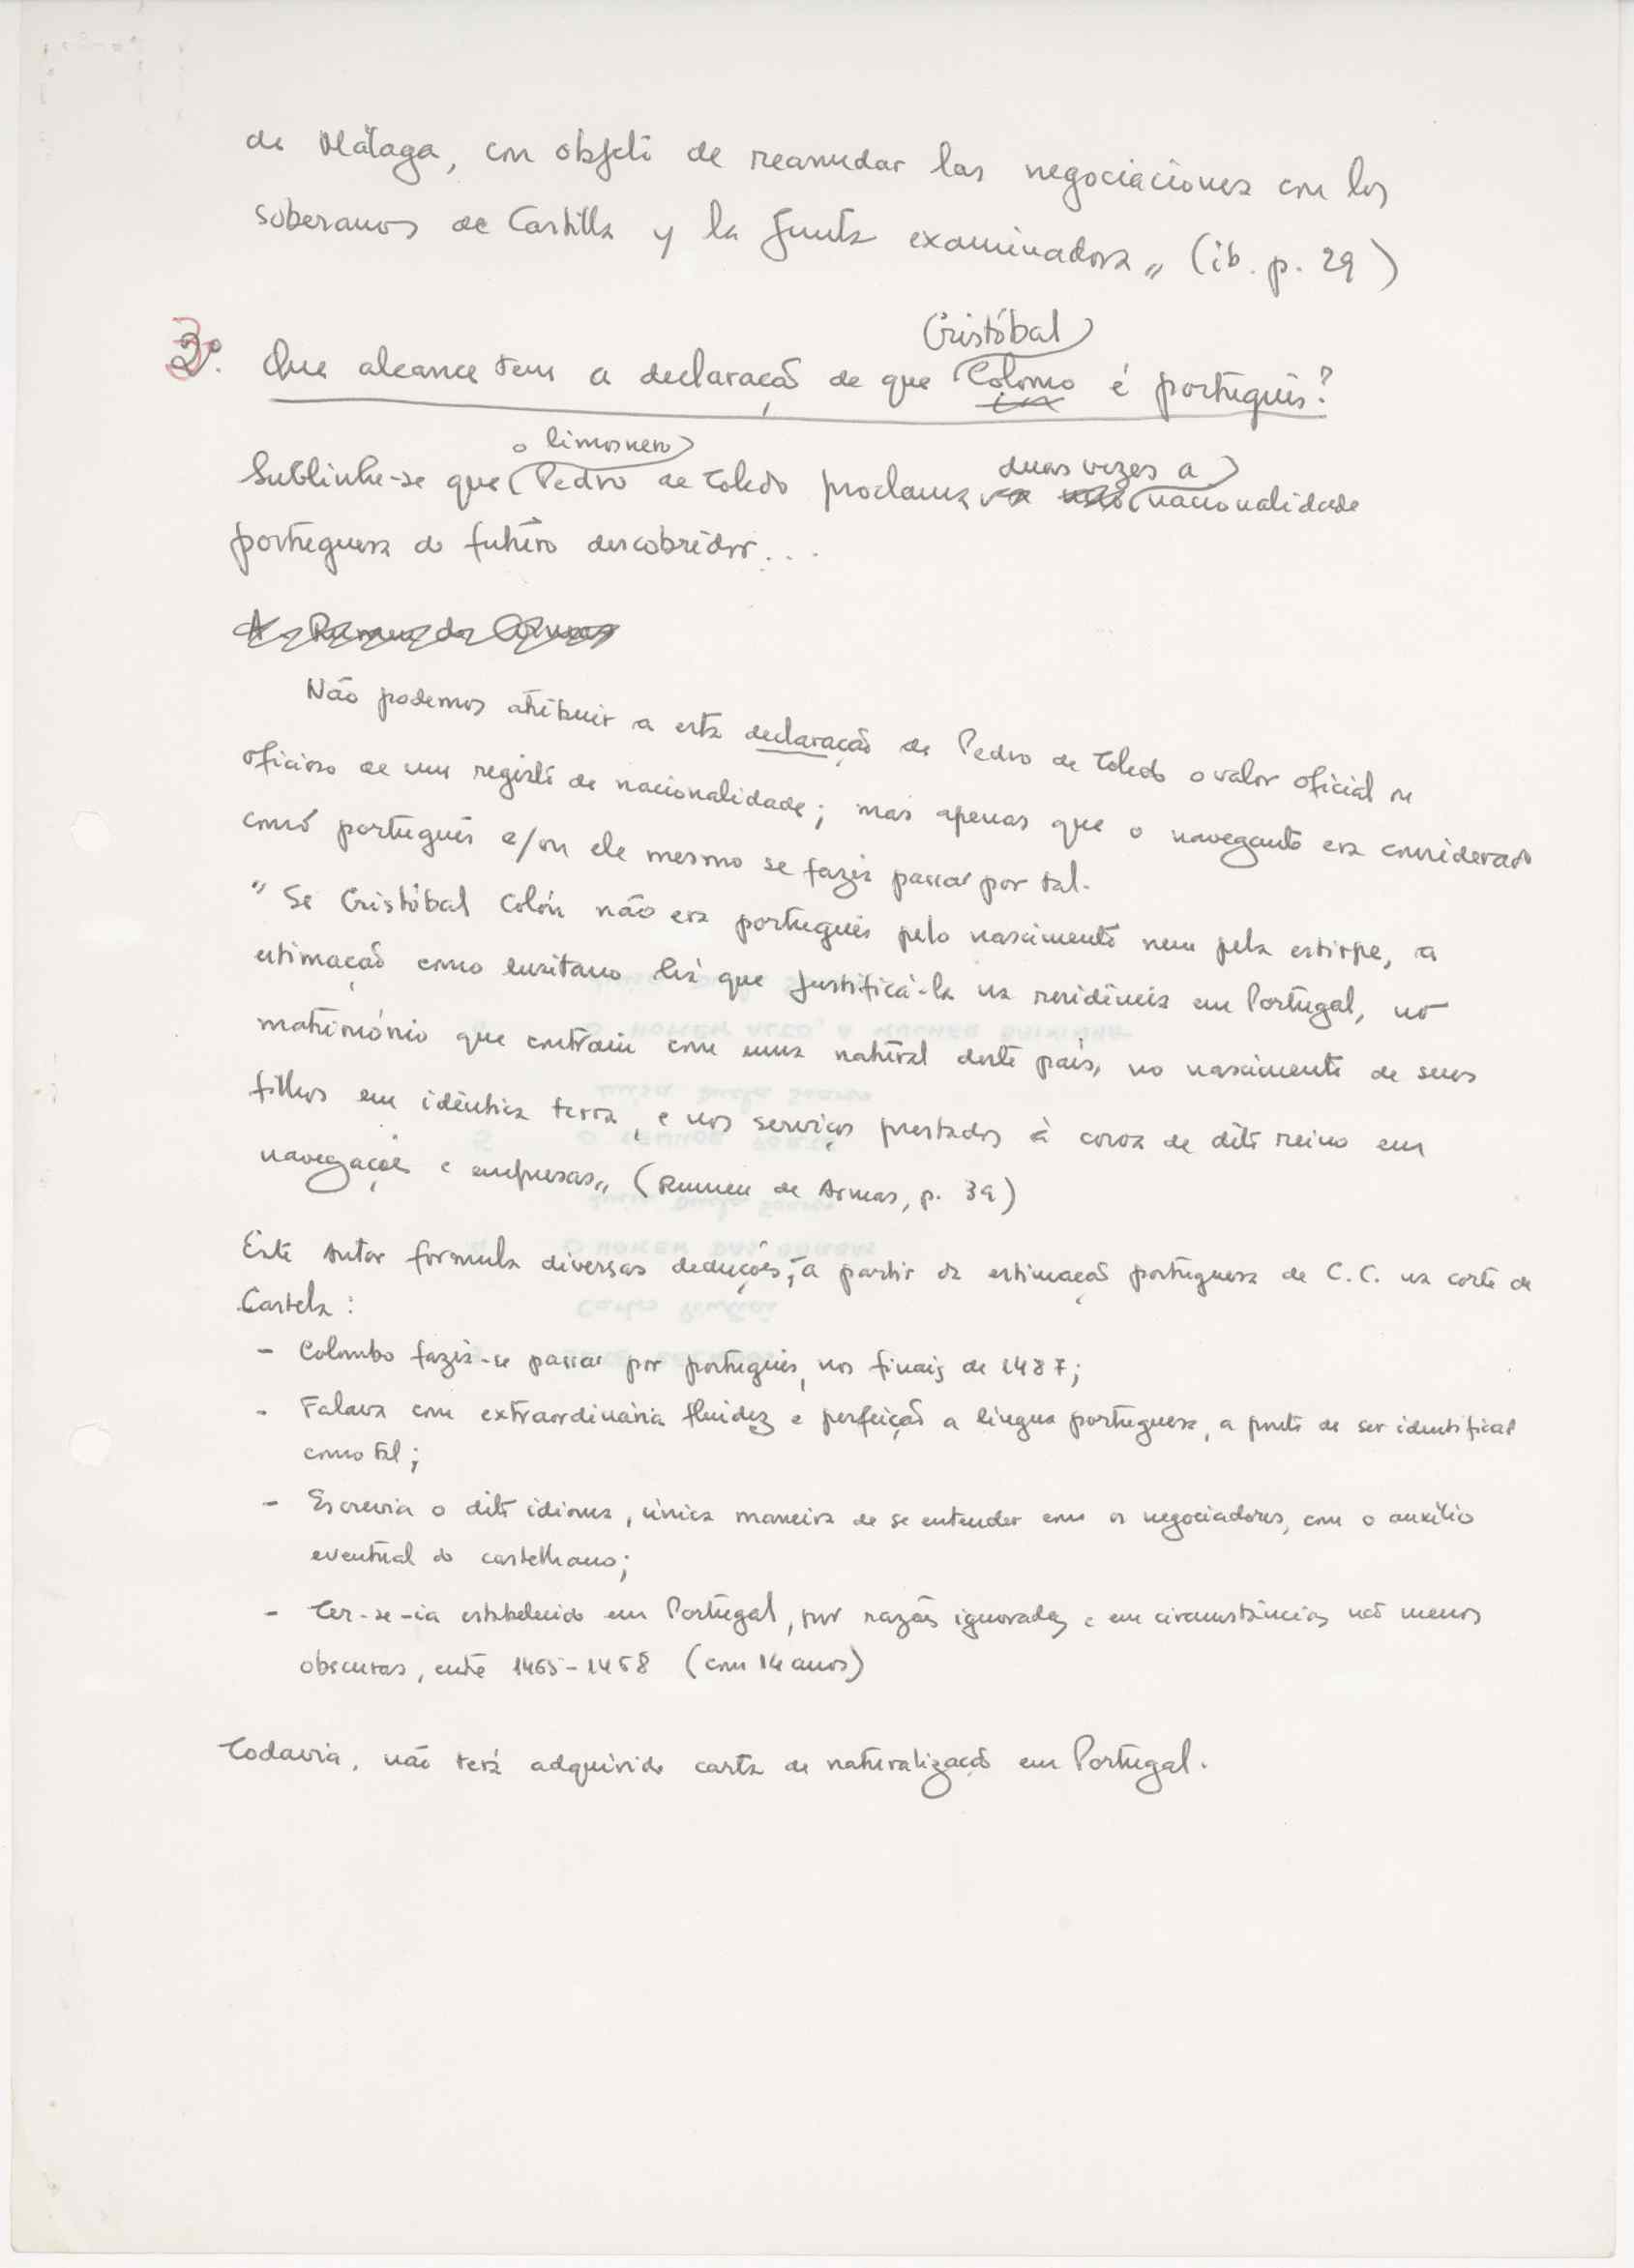 de Málaga, con objeto de reanudar las negociaciones con los
soberanos de Castilla y la Junta examinadora„ (ib. p. 29)
Cristóbal
3º. Que alcance tem a declaração de que Colomo é português?
o limosnero duas vezes a
Sublinhe-se que Pedro de Toledo proclama nacionalidade
portuguesa do futuro descobridor...
A. Rumeu de Armas
Não podemos atribuir a esta declaração de Pedro de Toledo o valor oficial ou
oficioso de um registo de nacionalidade; mas apenas que o navegante era considerado
como português e/ou ele mesmo se fazia passar por tal.
"Se Cristóbal Colón não era português pelo nascimento nem pela estirpe, a
estimação como lusitano há que justificá-la na residência em Portugal, no
matrimónio que contraiu com uma natural deste país, no nascimento de seus
filhos em idêntica terra, e nos serviços prestados à coroa de dito reino em
navegações e empresas„ (Rumeu de Armas, p. 39)
Este Autor formula diversas deduções, a partir da estimação portuguesa de C.C. na corte de
Castela:
- Colombo fazia-se passar por português, nos finais de 1487;
- Falava com extraordinária fluidez e perfeição a língua portuguesa, a ponto de ser identificado
como tal;
- Escrevia o dito idioma, única maneira de se entender com os negociadores, com o auxílio
eventual do castelhano;
- Ter-se-ia estabelecido em Portugal, por razões ignoradas e em circunstâncias não menos
obscuras, entre 1465-1468 (com 14 anos)
Todavia, não terá adquirido carta de naturalização em Portugal.